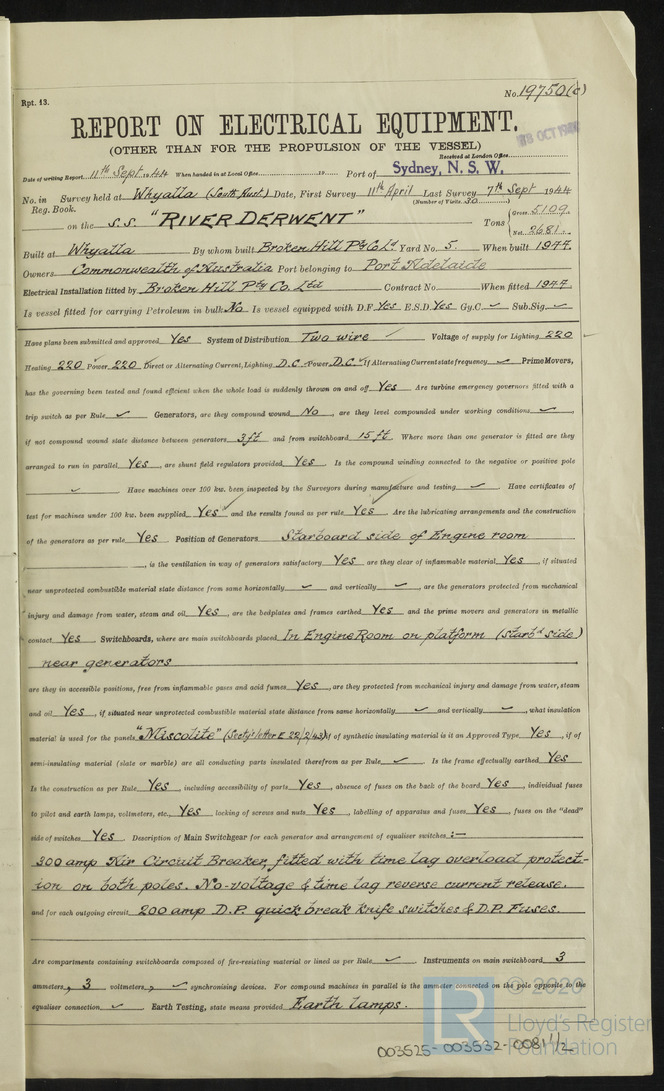 Rpt. 13.
No. 19750(c)
REPORT ON ELECTRICAL EQUIPMENT.
(OTHER THAN FOR THE PROPULSION OF THE VESSEL)
OCT 194
Received at London Office
Date of writing Report 11th Sept. 1944 When handed in at Local Office 19 Port of Sydney, N. S. W.
No. in Reg. Book. Survey held at Whyalla (South Aust.) Date, First Survey 11th April Last Survey 7th Sept 1944
(Number of Visits 30)
on the S.S. "RIVER DERWENT" Tons Gross 5109 Net 2681
Built at Whyalla By whom built Broken Hill Pty Co Ld Yard No. 5. When built 1944
Owners Commonwealth of Australia Port belonging to Port Adelaide
Electrical Installation fitted by Broken Hill Pty Co. Ltd Contract No. When fitted 1944
Is vessel fitted for carrying Petroleum in bulk No Is vessel equipped with D.F. Yes E.S.D. Yes Gy.C. ✓ Sub.Sig. ✓
Have plans been submitted and approved Yes System of Distribution Two wire ✓ Voltage of supply for Lighting 220
Heating 220 Power 220 Direct or Alternating Current, Lighting D.C. Power D.C. If Alternating Current state frequency ✓ Prime Movers,
has the governing been tested and found efficient when the whole load is suddenly thrown on and off Yes Are turbine emergency governors fitted with a
trip switch as per Rule ✓ Generators, are they compound wound No, are they level compounded under working conditions ✓,
if not compound wound state distance between generators 3 ft and from switchboard 15 ft. Where more than one generator is fitted are they
arranged to run in parallel Yes, are shunt field regulators provided Yes. Is the compound winding connected to the negative or positive pole
✓ Have machines over 100 kw. been inspected by the Surveyors during manufacture and testing ✓. Have certificates of
test for machines under 100 kw. been supplied Yes and the results found as per rule Yes Are the lubricating arrangements and the construction
of the generators as per rule Yes Position of Generators Starboard side of Engine room
, is the ventilation in way of generators satisfactory Yes are they clear of inflammable material Yes, if situated
near unprotected combustible material state distance from same horizontally ✓ and vertically ✓, are the generators protected from mechanical
injury and damage from water, steam and oil Yes, are the bedplates and frames earthed Yes and the prime movers and generators in metallic
contact Yes Switchboards, where are main switchboards placed In Engine Room on platform (starbd side)
near generators
are they in accessible positions, free from inflammable gases and acid fumes Yes, are they protected from mechanical injury and damage from water, steam
and oil Yes, if situated near unprotected combustible material state distance from same horizontally ✓ and vertically ✓, what insulation
material is used for the panels "Miscolite" (Secty's letter E 22/2/43) if of synthetic insulating material is it an Approved Type Yes, if of
semi-insulating material (slate or marble) are all conducting parts insulated therefrom as per Rule ✓ Is the frame effectually earthed Yes
Is the construction as per Rule Yes, including accessibility of parts Yes, absence of fuses on the back of the board Yes, individual fuses
to pilot and earth lamps, voltmeters, etc. Yes, locking of screws and nuts Yes, labelling of apparatus and fuses Yes, fuses on the "dead"
side of switches Yes Description of Main Switchgear for each generator and arrangement of equaliser switches :—
300 amp Air Circuit Breaker, fitted with time lag overload protect-
ion on both poles. No-voltage & time lag reverse current release.
and for each outgoing circuit 200 amp D.P. quick break knife switches & D.P. Fuses.
Are compartments containing switchboards composed of fire-resisting material or lined as per Rule ✓ Instruments on main switchboard 3
ammeters, 3 voltmeters, ✓ synchronising devices. For compound machines in parallel is the ammeter connected on the pole opposite to the
equaliser connection ✓ Earth Testing, state means provided Earth lamps.
LR
© 2020
Lloyd's Register
Foundation
003525-003532-0081 1/2